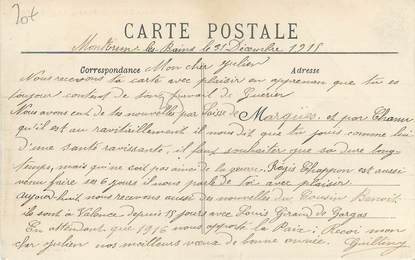 20€
CARTE POSTALE
les Bains le 31 Décembre 1915
Correspondance Adresse
Mon cher Julien
Nous recevons ta carte avec plaisir en apprenan que tu es
toujour content de ton travail de Guerier
Nous avons eut de tes nouvelles par Louise de Marques et par
qu'il est au ravitaillement il nous dit que tu jouis comme lui
d'une santé ravissante, il faut souhaiter que sa dure long-
temps, mais qui ne soit pas ainsi de la guerre. Régis Chappon est aussi
venu faire ses 6 jours il nous parle de toi avec plaisir
aujourd'huit nous recevons aussi des nouvelles du Cousin Benoit
il sont à Valence depuis 15 jours avec Louis Giraud de Gorgas
En attendant que 1916 nous apporte la Paix: Recoi mon
cher Julien nos meilleurs vœux de bonne année.